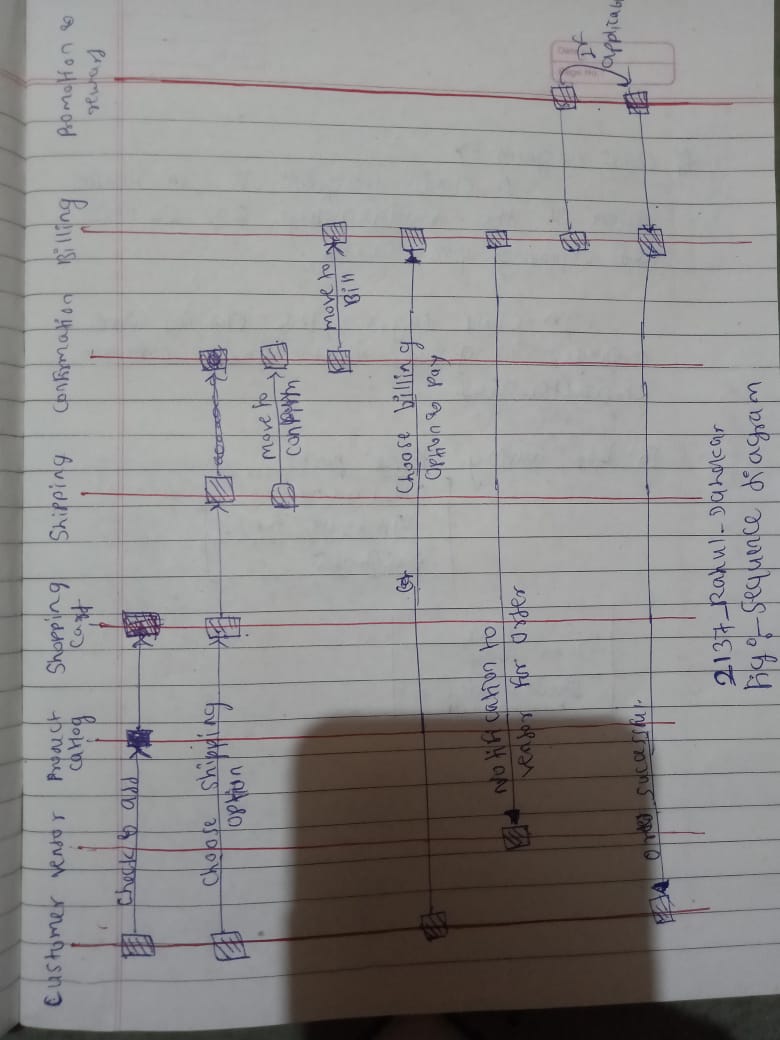 Customer
Vendor
Product
Catlog
Shopping
Cart
Shipping
Confirmation
Billing
Promotion &
reward
Check & add
Choose shipping
option
move to
confirm
move to
Bill
Choose billing
option & pay
Notification to
vendor for order
If
applicab
Order sucessful.
2137_Rahul_Dandkar
Fig : Sequence diagram